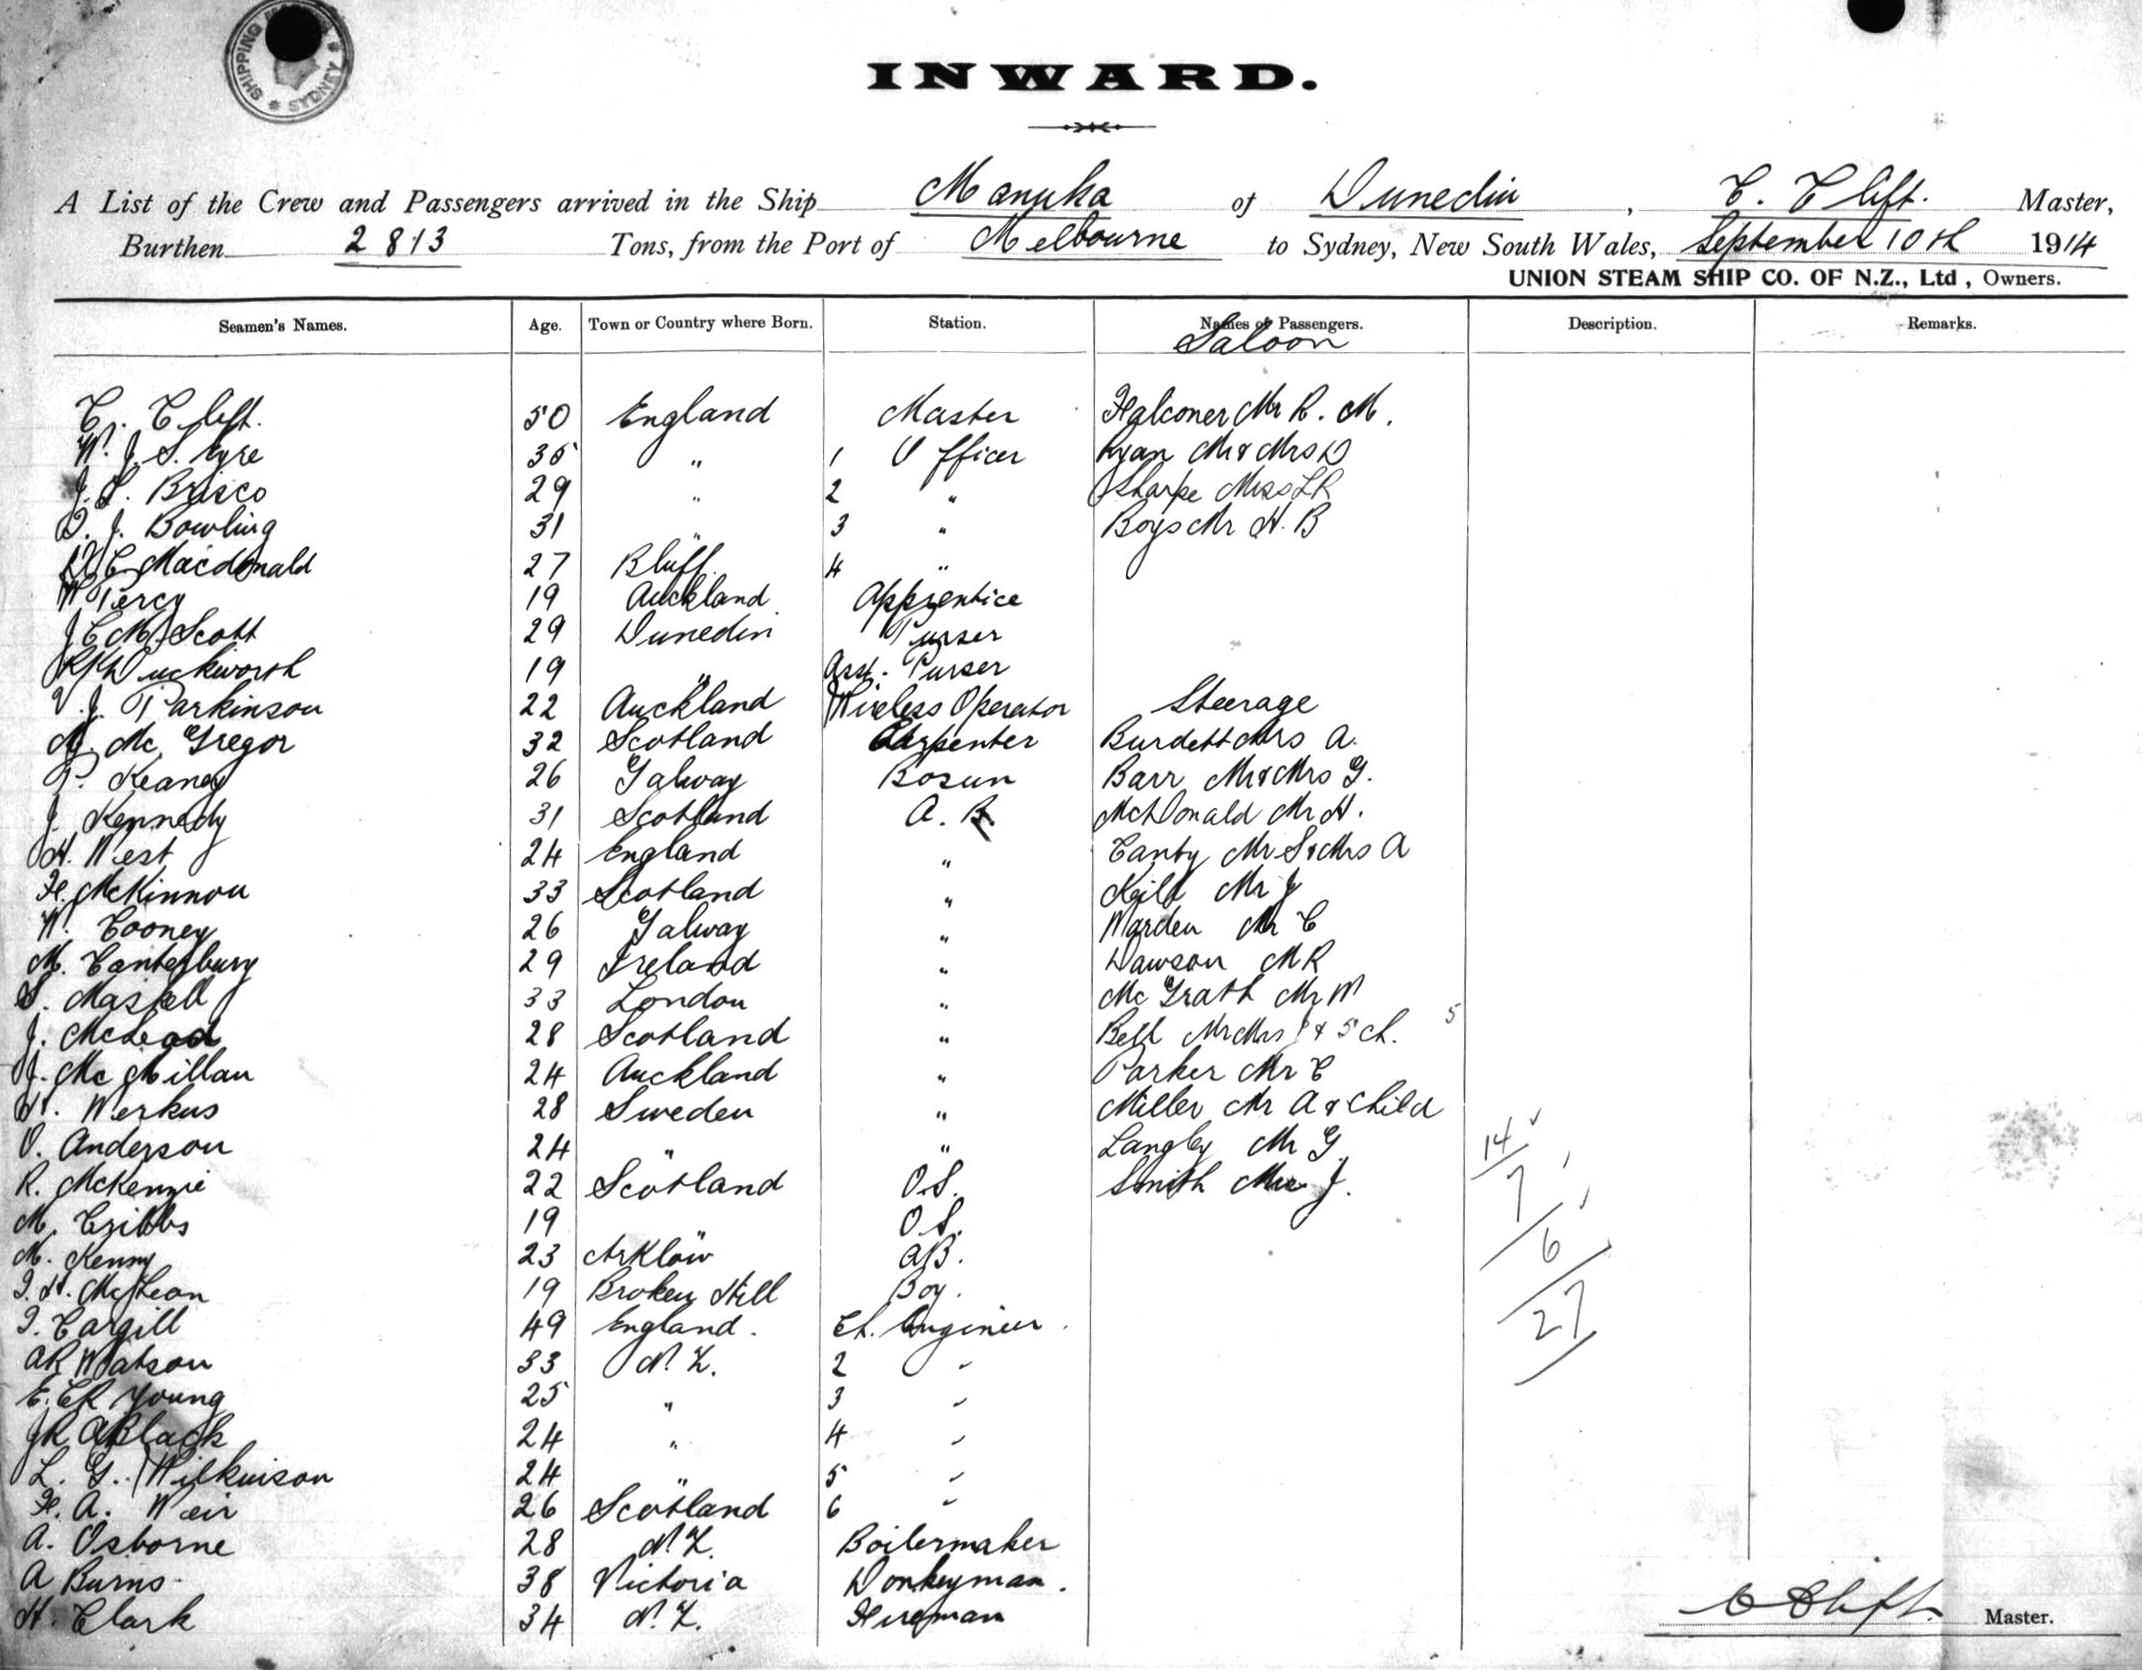 SHIPPING SYDNEY
INWARD.
A List of the Crew and Passengers arrived in the Ship Manuka of Dunedin, C. Clift. Master,
Burthen 2813 Tons, from the Port of Melbourne to Sydney, New South Wales, September 10th 1914
UNION STEAM SHIP CO. OF N.Z., Ltd, Owners.
Seamen's Names. Age. Town or Country where Born. Station. Names of Passengers. Description. Remarks.
Saloon
C. Clift. 50 England Master Falconer Mr R. M.
W. J. S. Eyre 35 " 1 Officer Ryan Mr & Mrs D
J. L. Brisco 29 " 2 " Sharpe Miss L R
D. J. Bowling 31 " 3 " Boys Mr H. B
Macdonald 27 Bluff 4 "
W Percy 19 Auckland Apprentice
J C M Scott 29 Dunedin Purser
Duckworth 19 " Asst. Purser
V. J. Parkinson 22 Auckland Wireless Operator Steerage
Mc Gregor 32 Scotland Carpenter Burdett Mrs A.
P. Keaney 26 Galway Bosun Barr Mr & Mrs G.
J. Kennedy 31 Scotland A. B. McDonald Mr H.
H. West 24 England " Canty Mr S & Mrs A
F. McKinnon 33 Scotland " Mr J
W. Cooney 26 Galway " Warden Mr C
M. Canterbury 29 Ireland " Dawson M R
S. Maskell 33 London " Mc Grath Mr M
J. McLeod 28 Scotland " Bell Mr Mrs & 5 ch. 5
J. Mc Millan 24 Auckland " Parker Mr C
H. Werkus 28 Sweden " Miller Mr A & Child
O. Anderson 24 " " Langby Mr G. 14
R. McKenzie 22 Scotland O.S. Smith J. 7
M. Cribbs 19 " O.S.
M. Kenny 23 Arklow A.B. 6
McLean 19 Broken Hill Boy.
Cargill 49 England. Ch. Engineer 27
A R Watson 33 N. Z. 2 "
E. C R Young 25 " 3 "
J R A Black 24 " 4 "
L. G. Wilkinson 24 " 5 "
F. A. Weir 26 Scotland 6 "
A. Osborne 28 N. Z. Boilermaker
A Burns 38 Victoria Donkeyman.
H. Clark 34 N. Z. Fireman
C Clift. Master.